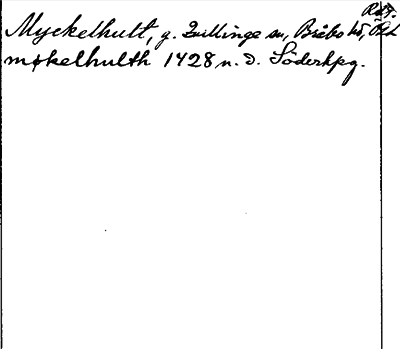 Rdf.
Myckelhult, g. Qvillinge sn, Bråbo hd, Ögl
møkelhulth 1428 n. D. Söderkpg.